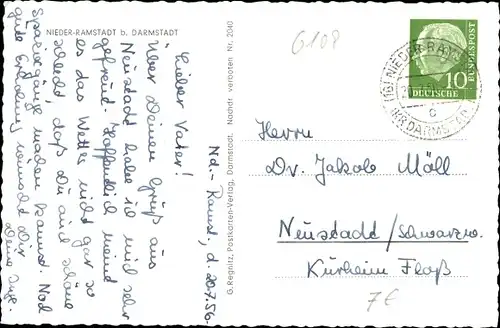 NIEDER-RAMSTADT b. DARMSTADT
Nd.- Ramst, d. 20.7.56.
Lieber Vater!
Über Deinen Gruß aus
Neustadt habe ich mich sehr
gefreut. Hoffentlich meint
es das Wetter nicht gar so
schlecht, daß Du auch schöne
Spaziergänge machen kannst. Noch
gute Erholung wünscht Dir
Deine
G. Regnitz, Postkarten-Verlag, Darmstadt. Nachdr. verboten Nr. 2040
6108
DEUTSCHE
BUNDESPOST
10
NIEDER-RAMSTADT
c
Herrn
Dr. Jakob Möll
Neustadt/Schwarzw.
Kurheim Floß
7€